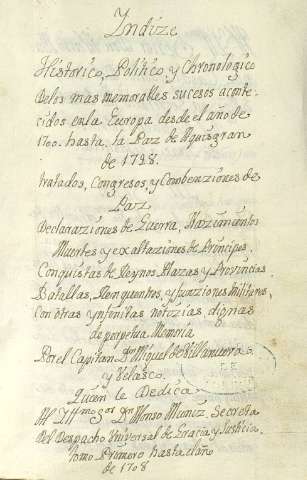 Indize
Historico, Politico, y Chronologico
delos mas memorables sucesos aconte-
cidos en la Europa desde el año de
1700. hasta la Paz de Aquisgran
de 1748.
tratados, Congresos, y Combenziones de
Paz
Declaraziones de Guerra, Naziumientos
Muertes y exaltaziones de Principes.
Conquistas de Reynos Plazas y Provincias
Batallas, Renquentros, y funziones Militares,
Con otras ynfinitas notizias dignas
de perpetua Memoria
Por el Capitan Dn Miguel de Villanueva
y Velasco.
Quien le Dedica
Al Illmo Sor Dn Alonso Muñiz, Secreta
del Despacho Universal de Gracia y Justicia.
tomo Primero hasta el año
de 1708